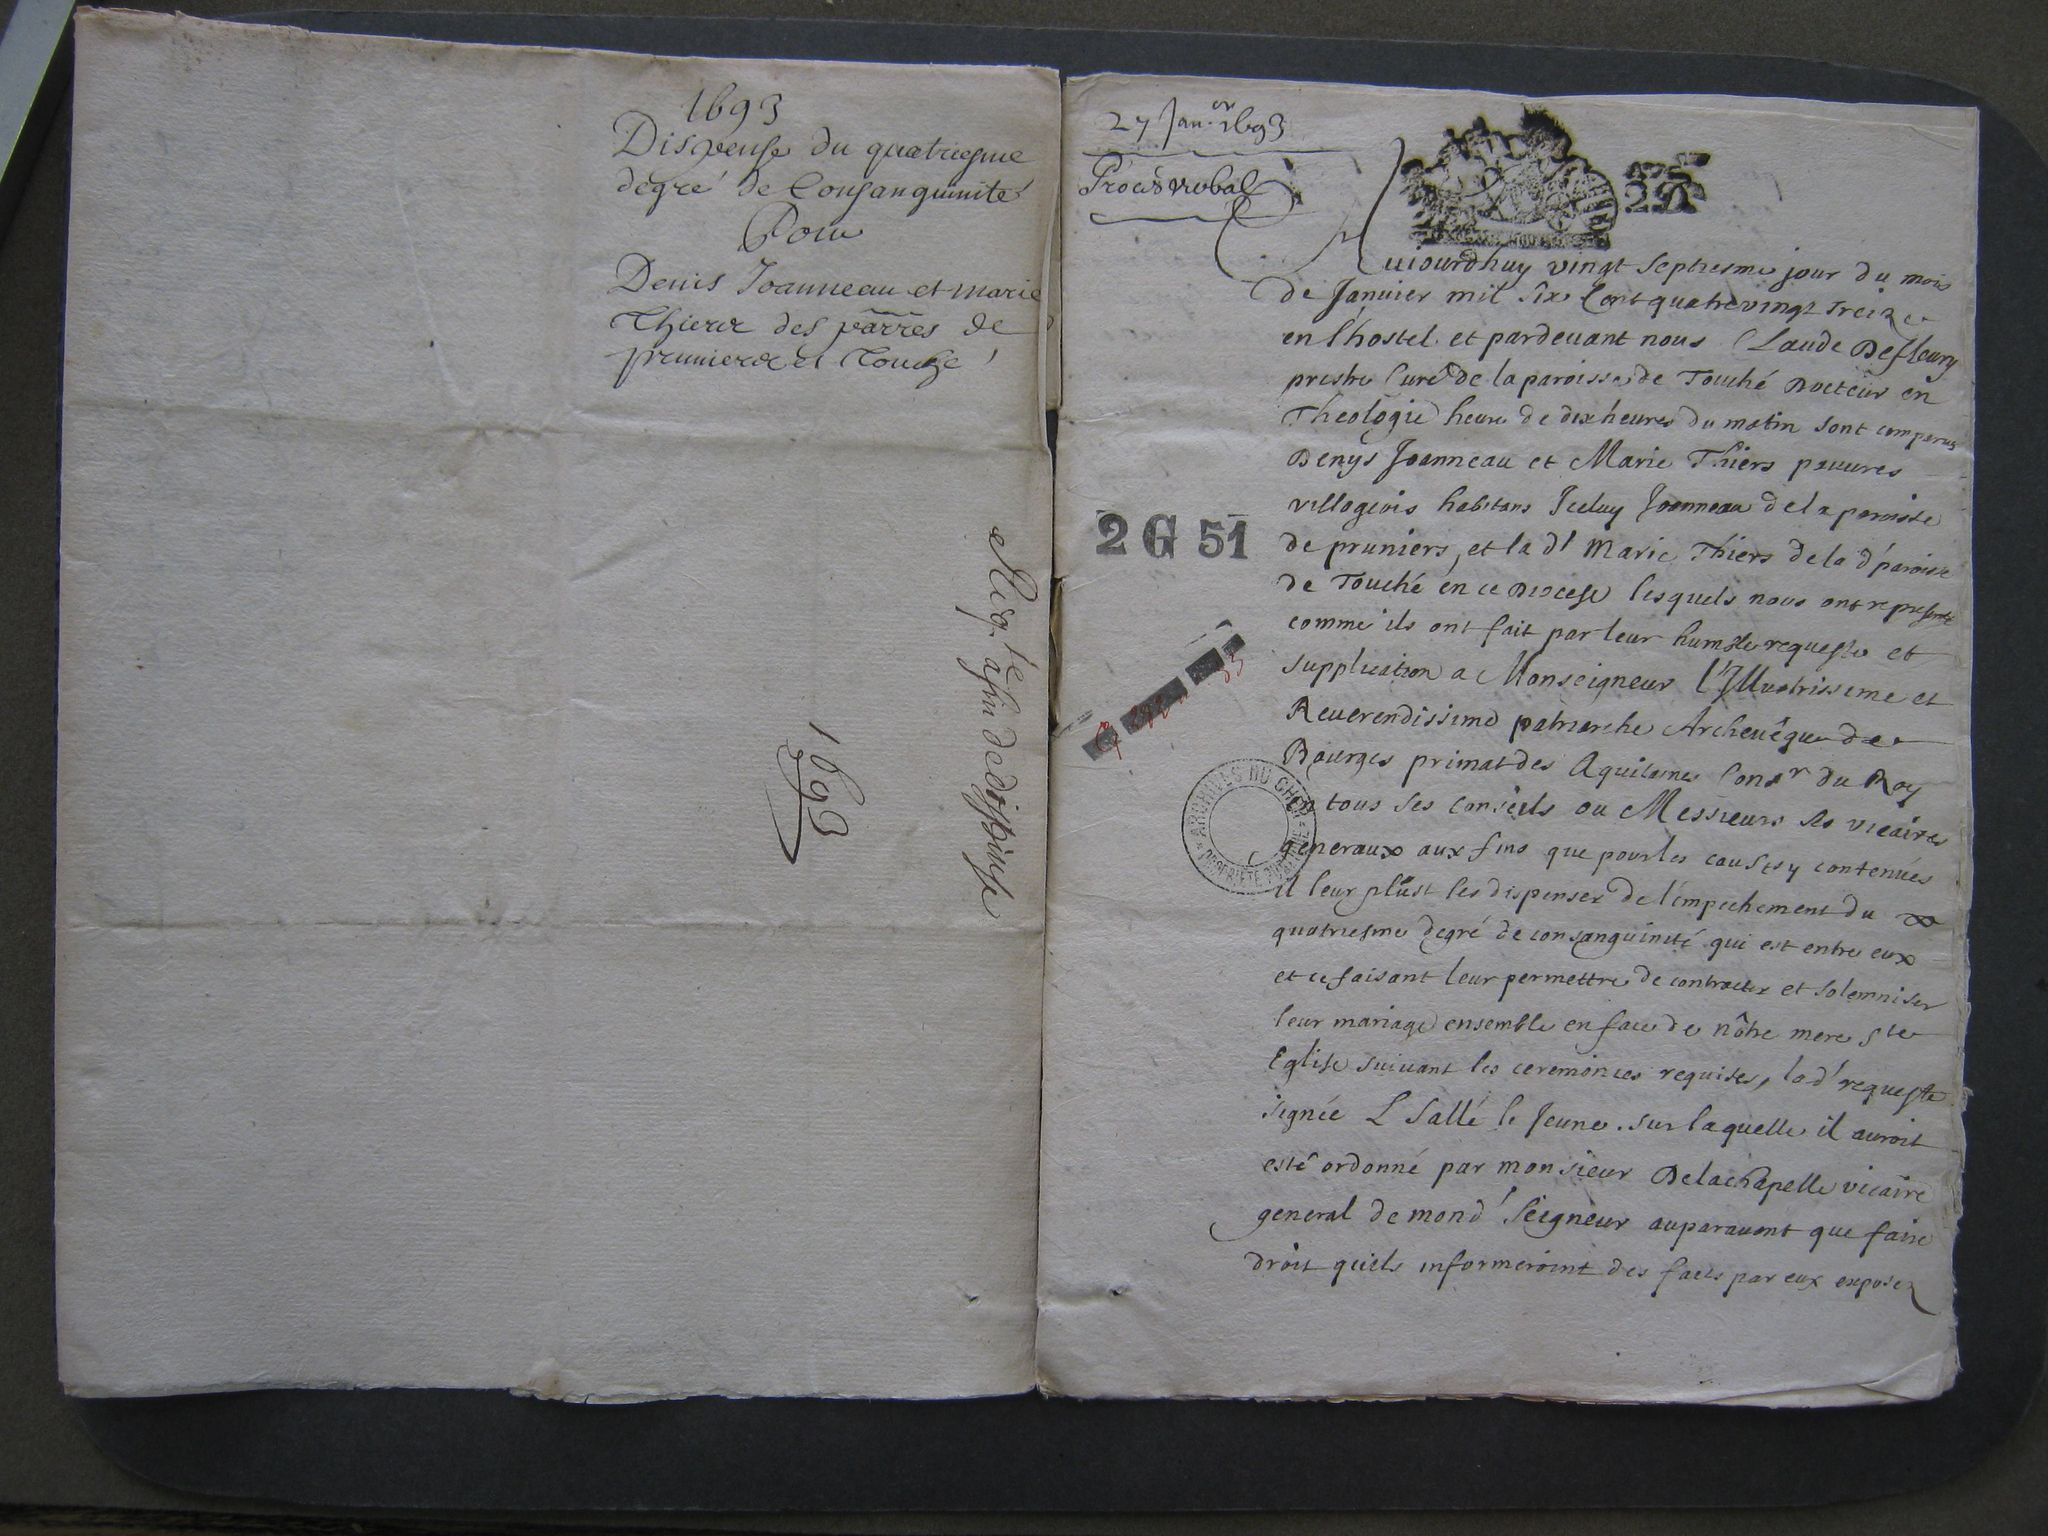 1693
Dispense du quatriesme
degré de Consanguinité
Pour
Denis Joanneau et marie
Thiere des parres de
pruniere et Touche
Req.te afin de dispense
1693
27 Jan.er 1693
Procès verbal
2 G 51
ARCHIVES DU CHER
PROPRIETE PUBLIQUE
Auiourdhuy vingt septiesme jour du mois
de Januier mil six Cent quatrevingt treize
en l'hostel et pardeuant nous Claude Defleury
prestre Curé de la paroisse de Touché Docteur en
Theologie heure de dix heures du matin sont comparus
Denys Joanneau et Marie Thiers pauures
villageois habitans Iceluy Joanneau de la paroisse
de pruniers, et la d' Marie Thiers de la d' paroisse
de Touché en ce Diocese lesquels nous ont representé
comme ils ont fait par leur humble requeste et
supplication a Monseigneur l'Illustrissime et
Reuerendissime patriarche Archeuêque de
Bourges primat des Aquitaines Cons.r du Roy
en tous ses conseils ou Messieurs ses vicaires
generaux aux fins que pour les causes y contenues
il leur plust les dispenser de l'empechement du
quatriesme degré de consanguinité qui est entre eux
et ce faisant leur permettre de contracter et solemniser
leur mariage ensemble en face de nôtre mere Ste
Eglise suiuant les ceremonies requises, la d' requeste
signée L Sallé le Jeune. sur laquelle il auroit
esté ordonné par monsieur Delachapelle vicaire
general de mond' Seigneur auparauant que faire
droit quiels informeroint des faits par eux exposez